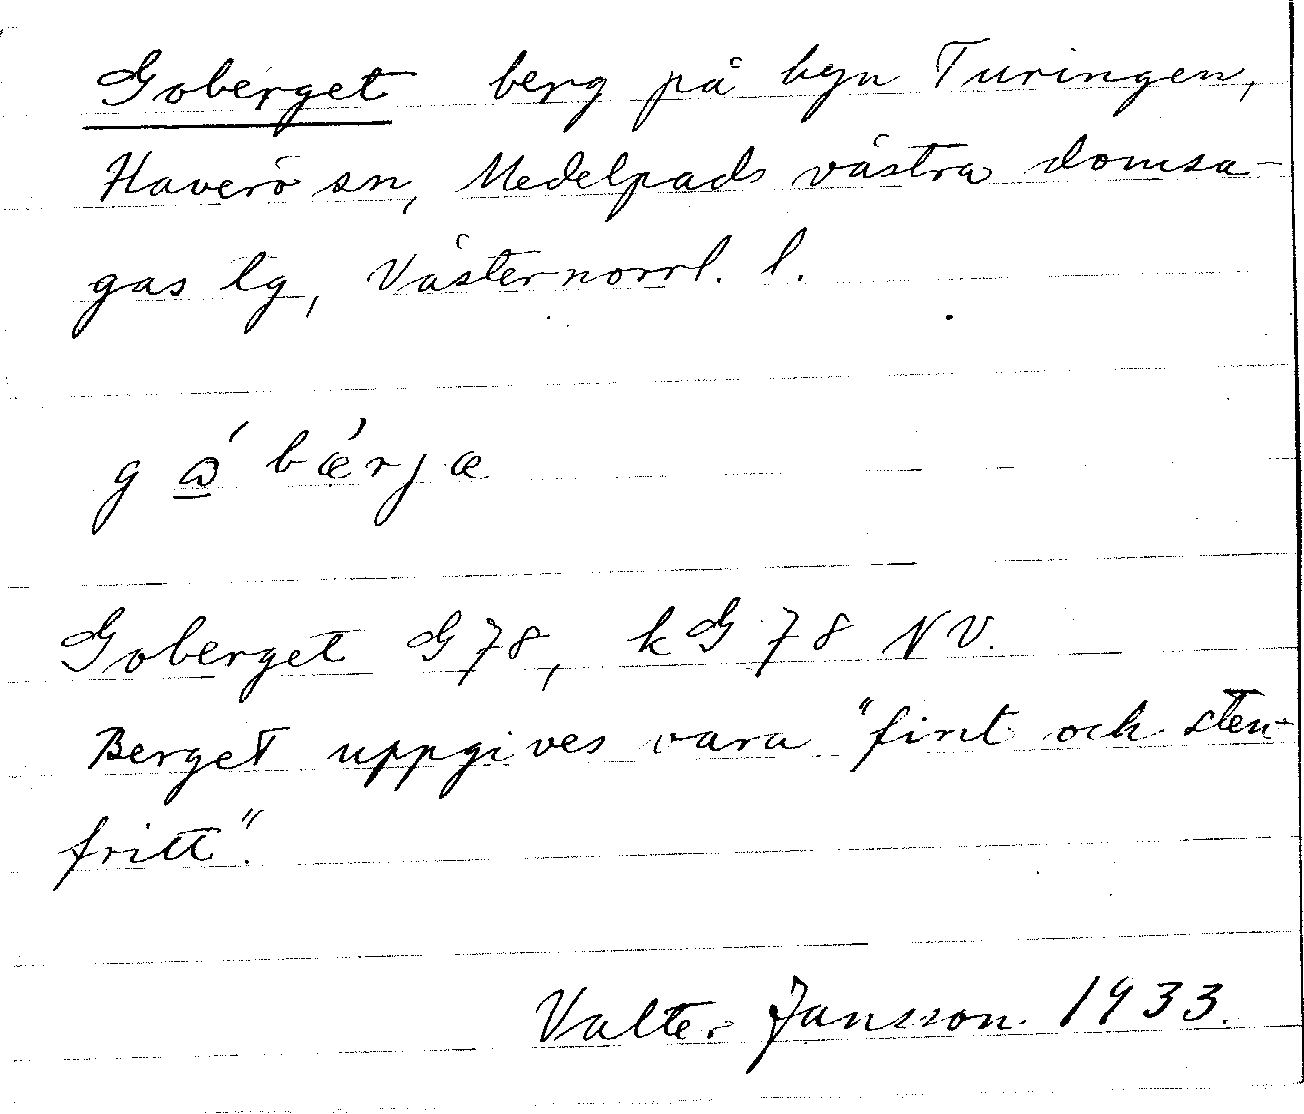 Goberget berg på byn Turingen,
Haverö sn, Medelpads västra domsa-
gas tg, Västernorrl. l.
Goberget G 78, k G 78 NV.
Berget uppgives vara "fint och sten-
fritt".
Valter Jansson. 1933.